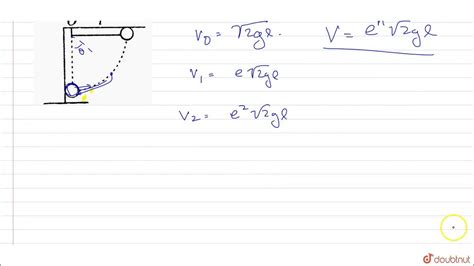 V₀ = √2gl.
V = eⁿ √2gl
θ₁
V₁ = e√2gl
V₂ = e² √2gl
doubtnut